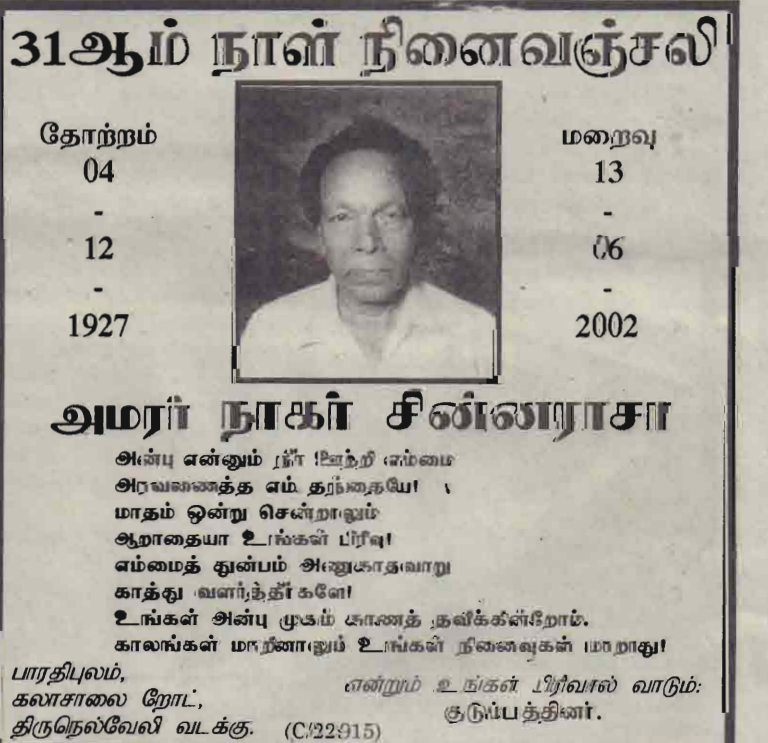 31ஆம் நாள் நினைவஞ்சலி
தோற்றம்
04
-
12
-
1927
மறைவு
13
-
06
-
2002
அமரர் நாகர் சின்னராசா
அன்பு என்னும் நீர் ஊற்றி எம்மை
அரவணைத்த எம் தந்தையே!
மாதம் ஒன்று சென்றாலும்
ஆறாதையா உங்கள் பிரிவு!
எம்மைத் துன்பம் அணுகாதவாறு
காத்து வளர்த்தீர்களே!
உங்கள் அன்பு முகம் காணத் தவிக்கின்றோம்.
காலங்கள் மாறினாலும் உங்கள் நினைவுகள் மாறாது!
பாரதிபுலம்,
கலாசாலை றோட்,
திருநெல்வேலி வடக்கு. (C/22915)
என்றும் உங்கள் பிரிவால் வாடும்:
குடும்பத்தினர்.